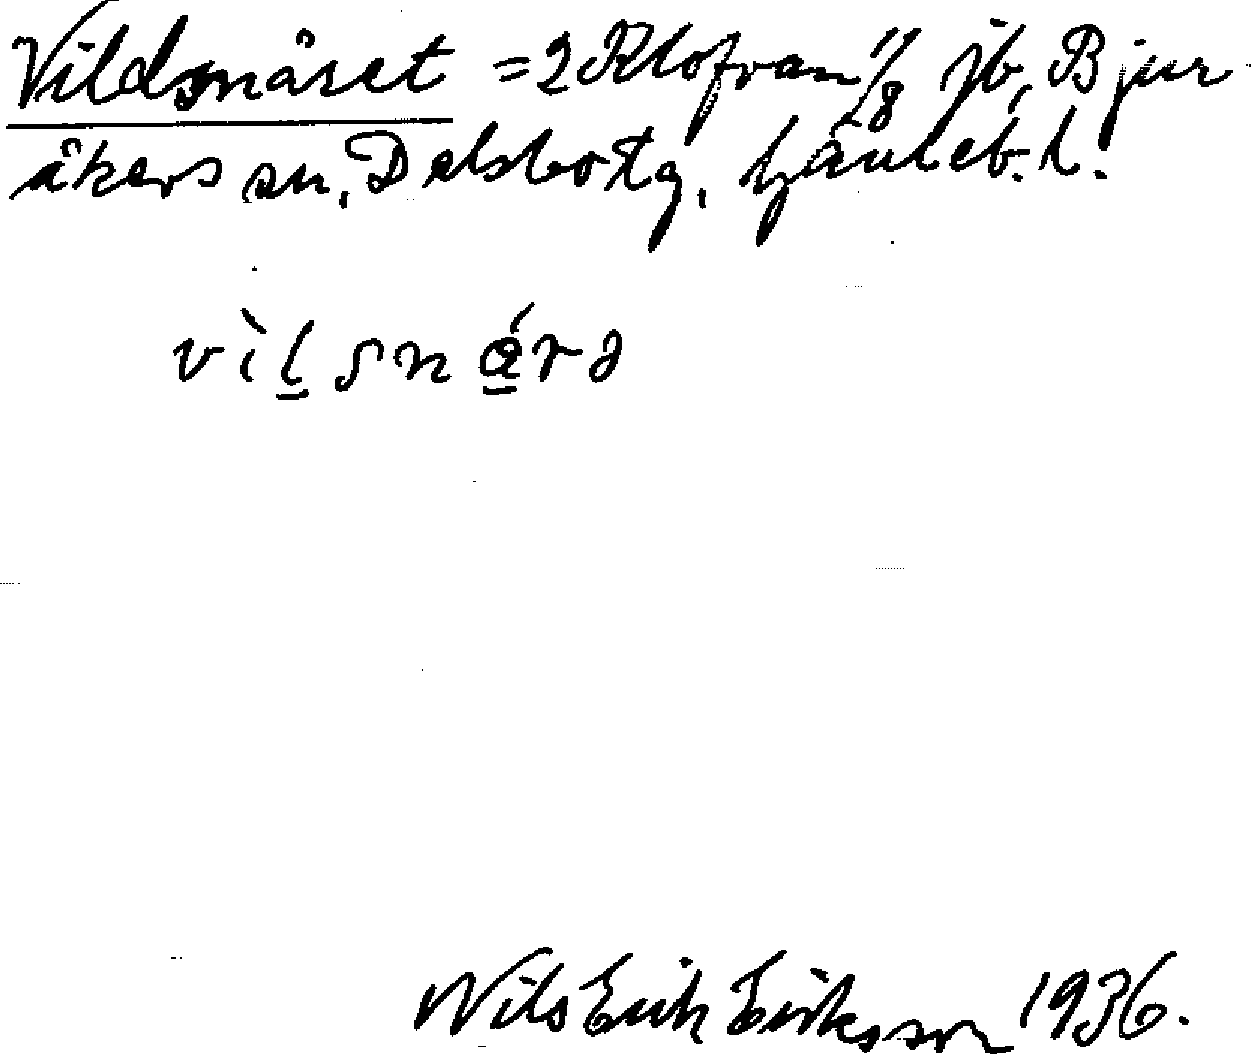 Vildsnåret = 2 Klofvan 11/8 jb, Bjur
åkers sn, Delsbo tg, Gävleb. l.
Nils Erik Eriksson 1936.